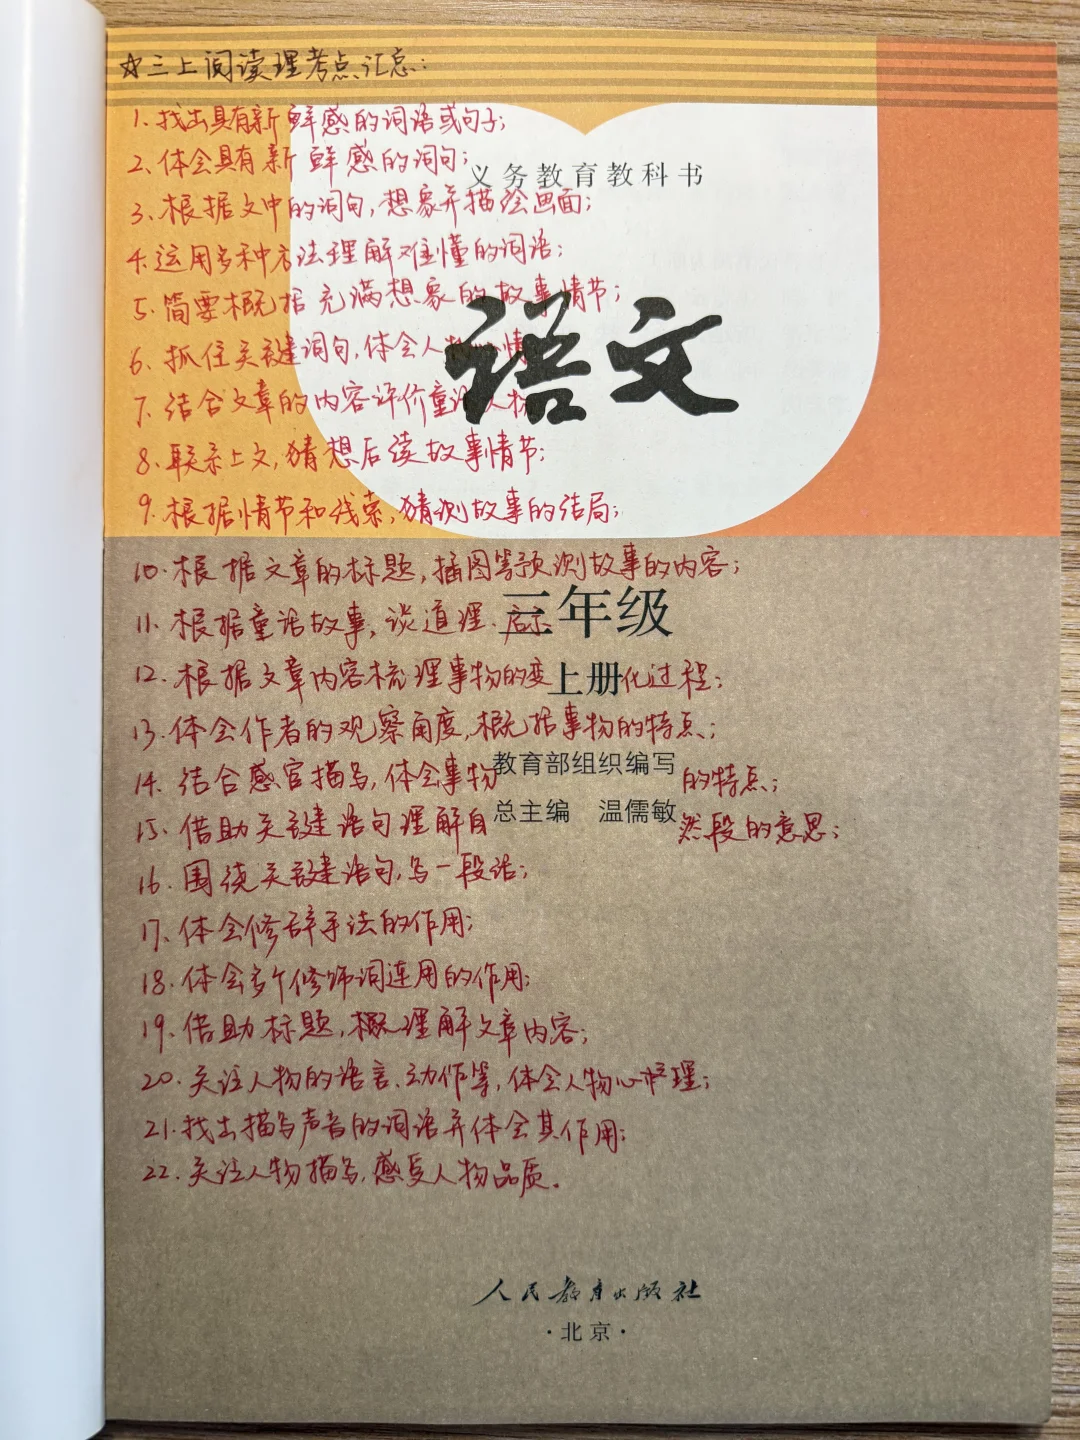 ☆三上阅读理考点汇总:
1、找出具有新鲜感的词语或句子;
2、体会具有新鲜感的词句;
义务教育教科书
3、根据文中的词句,想象并描绘画面;
4.运用多种方法理解难懂的词语;
5、简要概括充满想象的故事情节;
语文
6、抓住关键词句,体会人物心情
7、结合文章的内容评价童话人物
8、联系上文,猜想后续故事情节;
9、根据情节和线索,猜测故事的结局;
10、根据文章的标题,插图等预测故事的内容;
三年级
11、根据童话故事,谈道理、启示
12、根据文章内容梳理事物的变化过程;
上册
13、体会作者的观察角度,概括事物的特点;
教育部组织编写
14、结合感官描写,体会事物的特点;
总主编 温儒敏
15、借助关键语句理解自然段的意思;
16、围绕关键语句,写一段话;
17、体会修辞手法的作用;
18、体会多个修饰词连用的作用;
19、借助标题,概理解文章内容;
20、关注人物的语言、动作等,体会人物心理;
21、找出描写声音的词语并体会其作用;
22、关注人物描写,感受人物品质。
人民教育出版社
·北京·